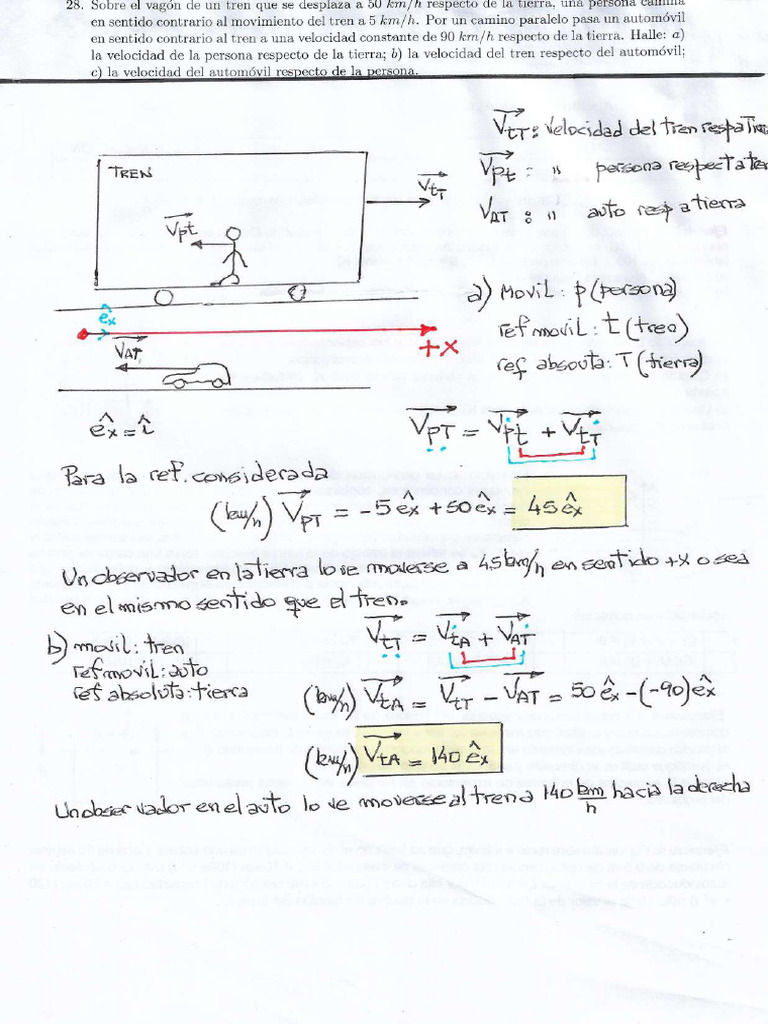 28. Sobre el vagón de un tren que se desplaza a 50 km/h respecto de la tierra, una persona camina
en sentido contrario al movimiento del tren a 5 km/h. Por un camino paralelo pasa un automóvil
en sentido contrario al tren a una velocidad constante de 90 km/h respecto de la tierra. Halle: a)
la velocidad de la persona respecto de la tierra; b) la velocidad del tren respecto del automóvil;
c) la velocidad del automóvil respecto de la persona.
VtT: Velocidad del tren resp a Tierra
Vpt: " persona respecto a tren
VAT: " auto resp a tierra
TREN
VtT
Vpt
a) Movil: p (persona)
ref movil: t (tren)
ref absouta: T (tierra)
êx
+X
VAT
êx = î
VpT = Vpt + VtT
Para la ref. considerada
(km/h) VpT = -5 êx + 50 êx = 45 êx
Un observador en la tierra lo ve moverse a 45 km/h en sentido +x o sea
en el mismo sentido que el tren.
b) movil: tren
ref movil: auto
ref absoluta: tierra
VtT = VtA + VAT
(km/h) VtA = VtT - VAT = 50 êx - (-90) êx
(km/h) VtA = 140 êx
Un observador en el auto lo ve moverse al tren a 140 km/h hacia la derecha